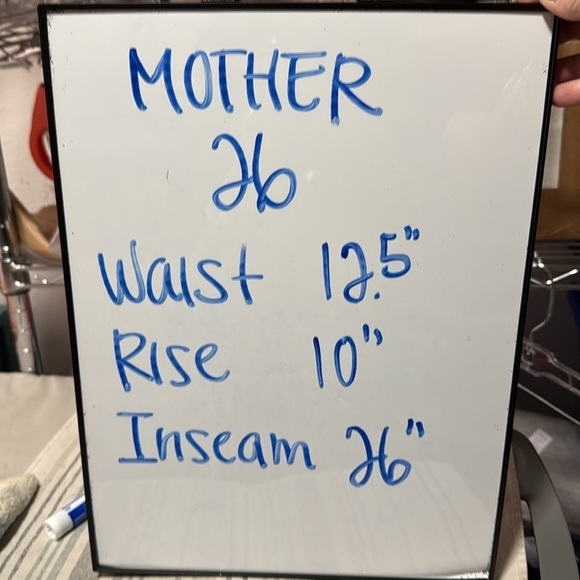 MOTHER
26
Waist 12.5"
Rise 10"
Inseam 26"